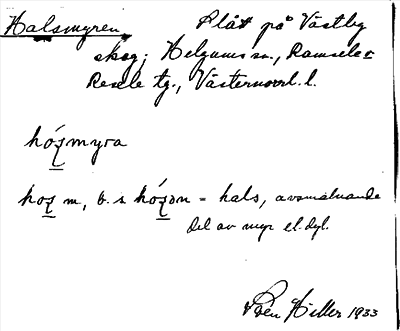 Halsmyren, Slått på Västby
skog; Helgums sn., Ramsele o
Resele tg., Västernorrl. l.
hóʒmyra
hoʒ m, b. s hóʒɔn = hals, avsmalnande
del av myr el. dyl.
Hiller 1933